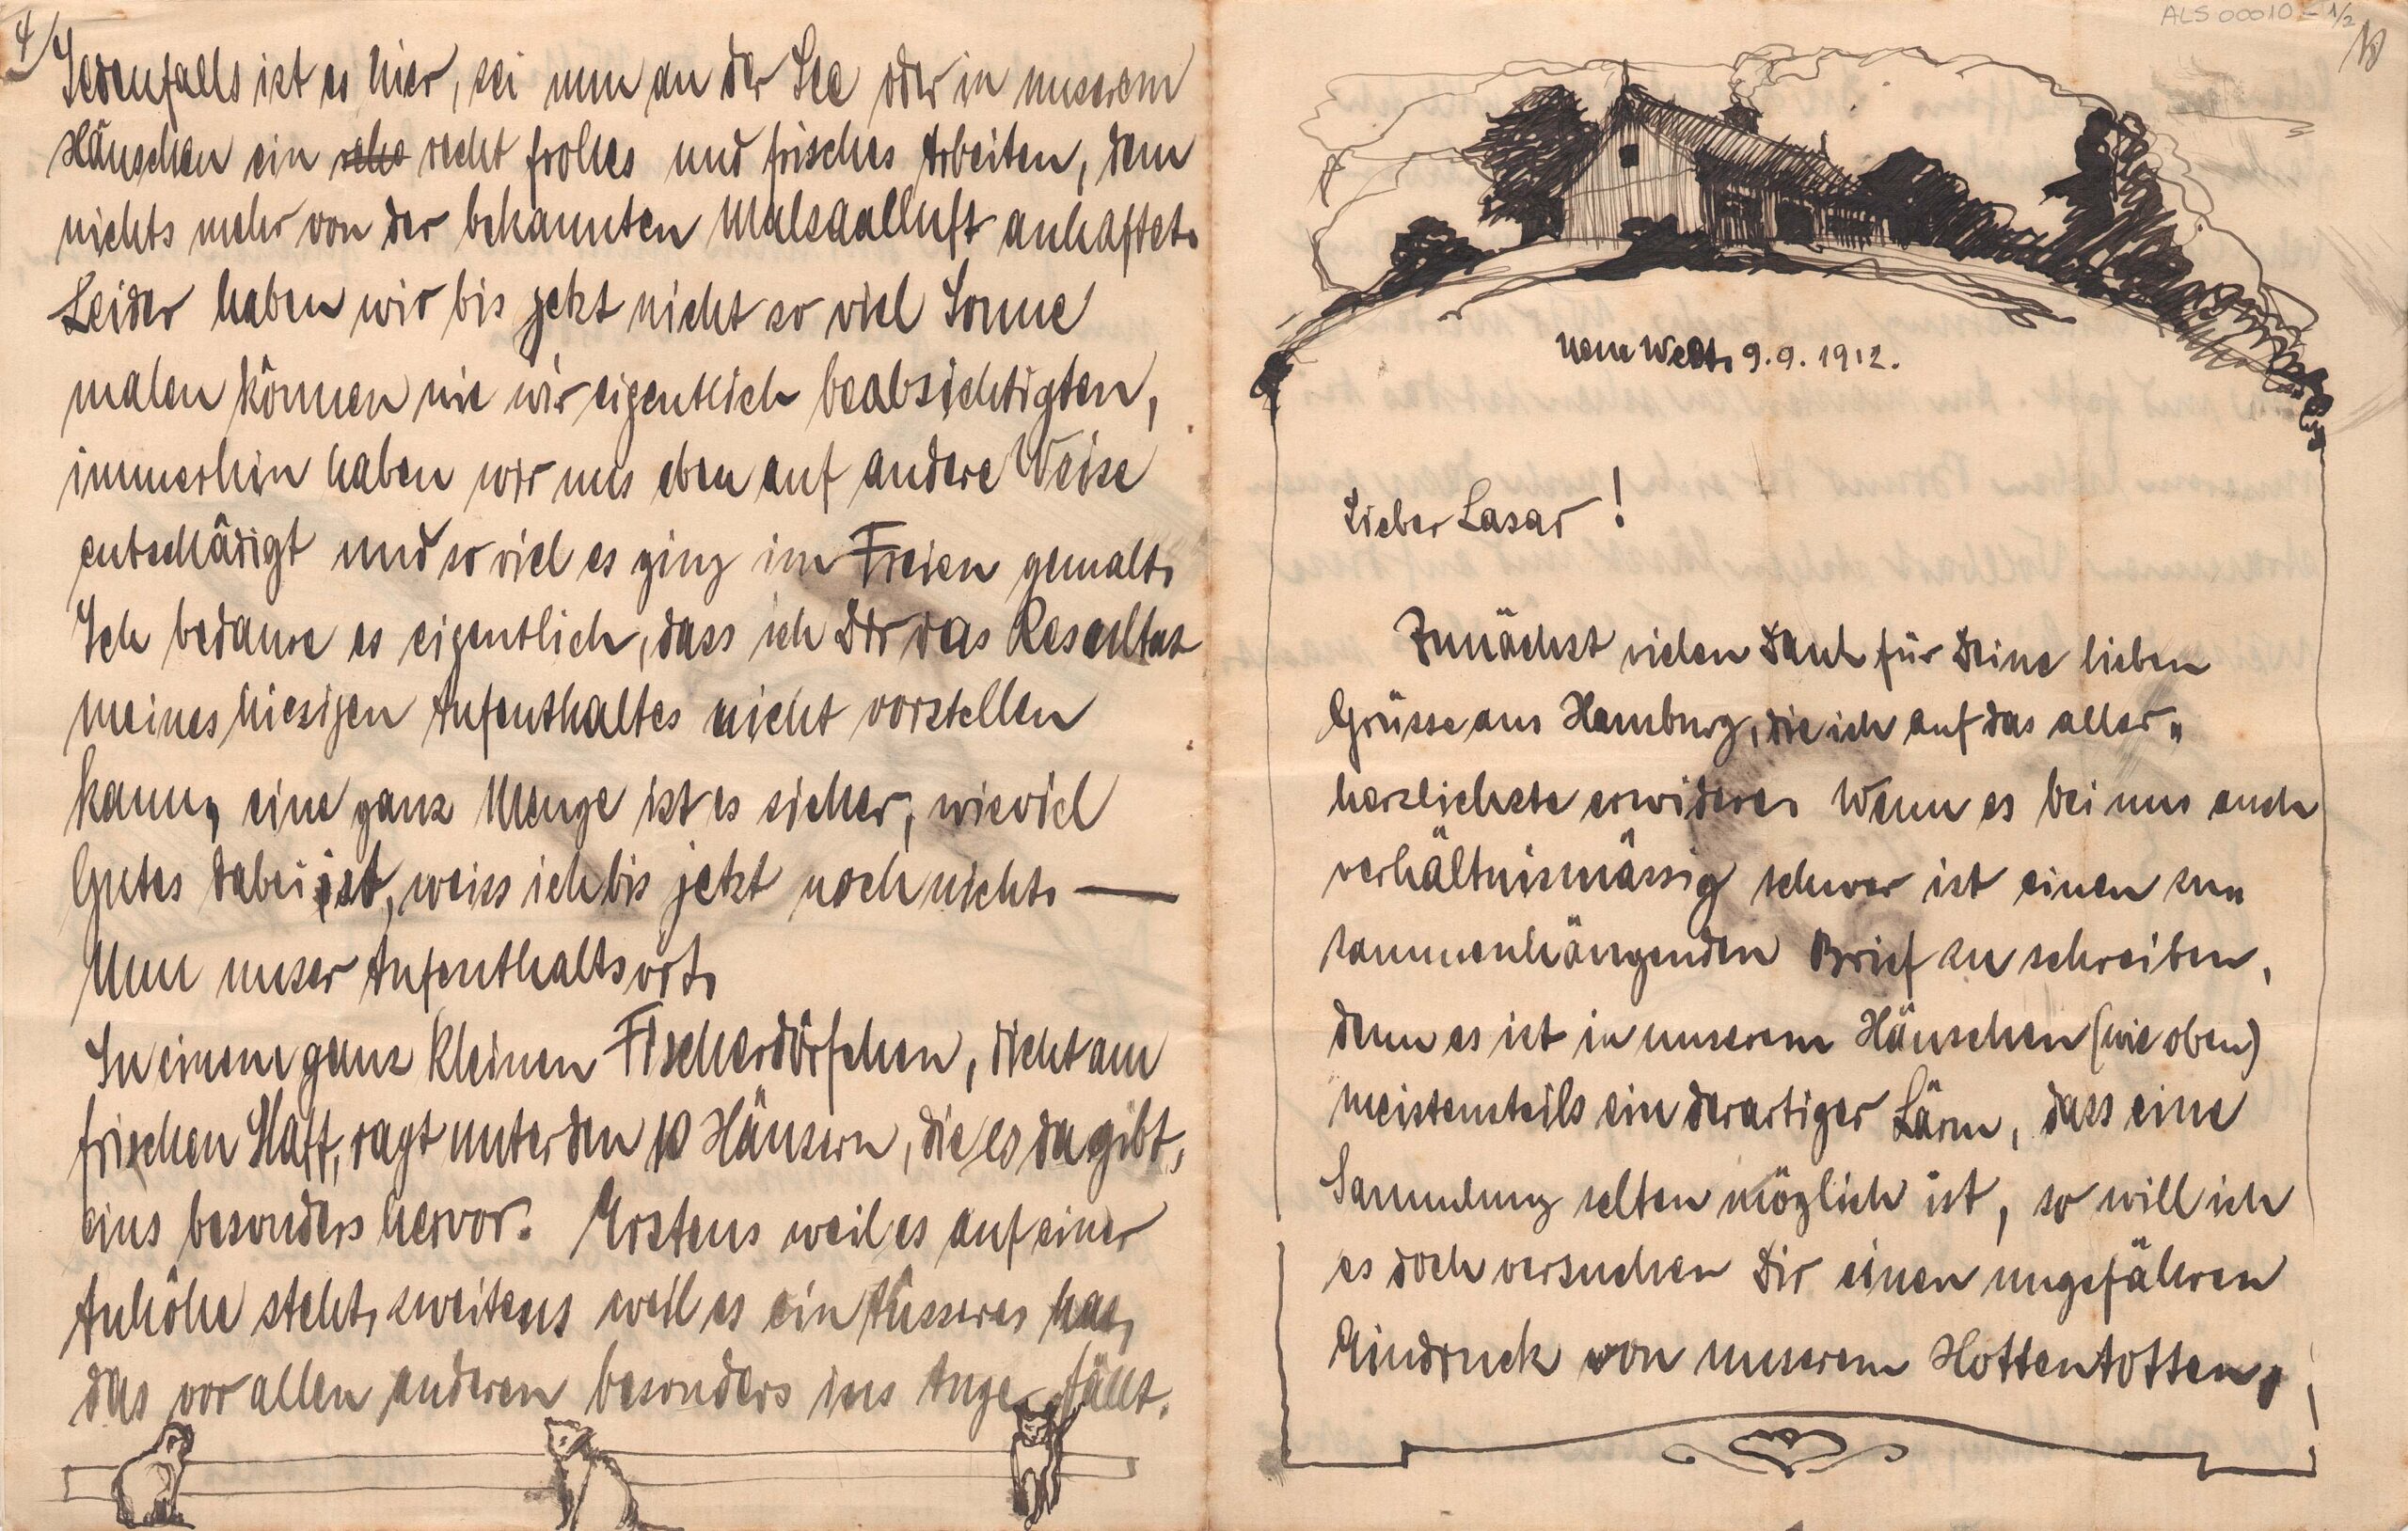 4/
Jedenfalls ist es hier, sei nun an der See oder in unserem
Häuschen ein rehe recht frohes und frisches Arbeiten, dem
nichts mehr von der bekannten Malsaalluft anhaftet.
Leider haben wir bis jetzt nicht so viel Sonne
malen können wie wir eigentlich beabsichtigten,
immerhin haben wir uns eben auf andere Weise
entschädigt und so viel es ging im Freien gemalt.
Ich bedaure es eigentlich, dass ich Dir das Resultat
meines hiesigen Aufenthaltes nicht vorstellen
kann, eine ganz Menge ist es sicher, wieviel
Gutes dabei ist, weiss ich bis jetzt noch nicht. —
Nun unser Aufenthaltsort.
In einem ganz kleinen Fischerdörfchen, dicht am
frischen Haff, ragt unter den 10 Häusern, die es da gibt,
eins besonders hervor. Erstens weil es auf einer
Anhöhe steht, zweitens weil es ein Äusseres hat,
das vor allen anderen besonders ins Auge fällt.
ALS 00010 - 1/2
Neue Welt. 9.9.1912.
Lieber Lasar!
Zunächst vielen Dank für Deine lieben
Grüsse aus Hamburg, die ich auf das aller-
herzlichste erwidere. Wenn es bei uns auch
verhältnismässig schwer ist einen zu-
sammenhängenden Brief zu schreiben,
denn es ist in unserem Häuschen (wie oben)
meistensteils ein derartiger Lärm, dass eine
Sammlung selten möglich ist, so will ich
es doch versuchen Dir einen ungefähren
Eindruck von unserem Hottentotten-